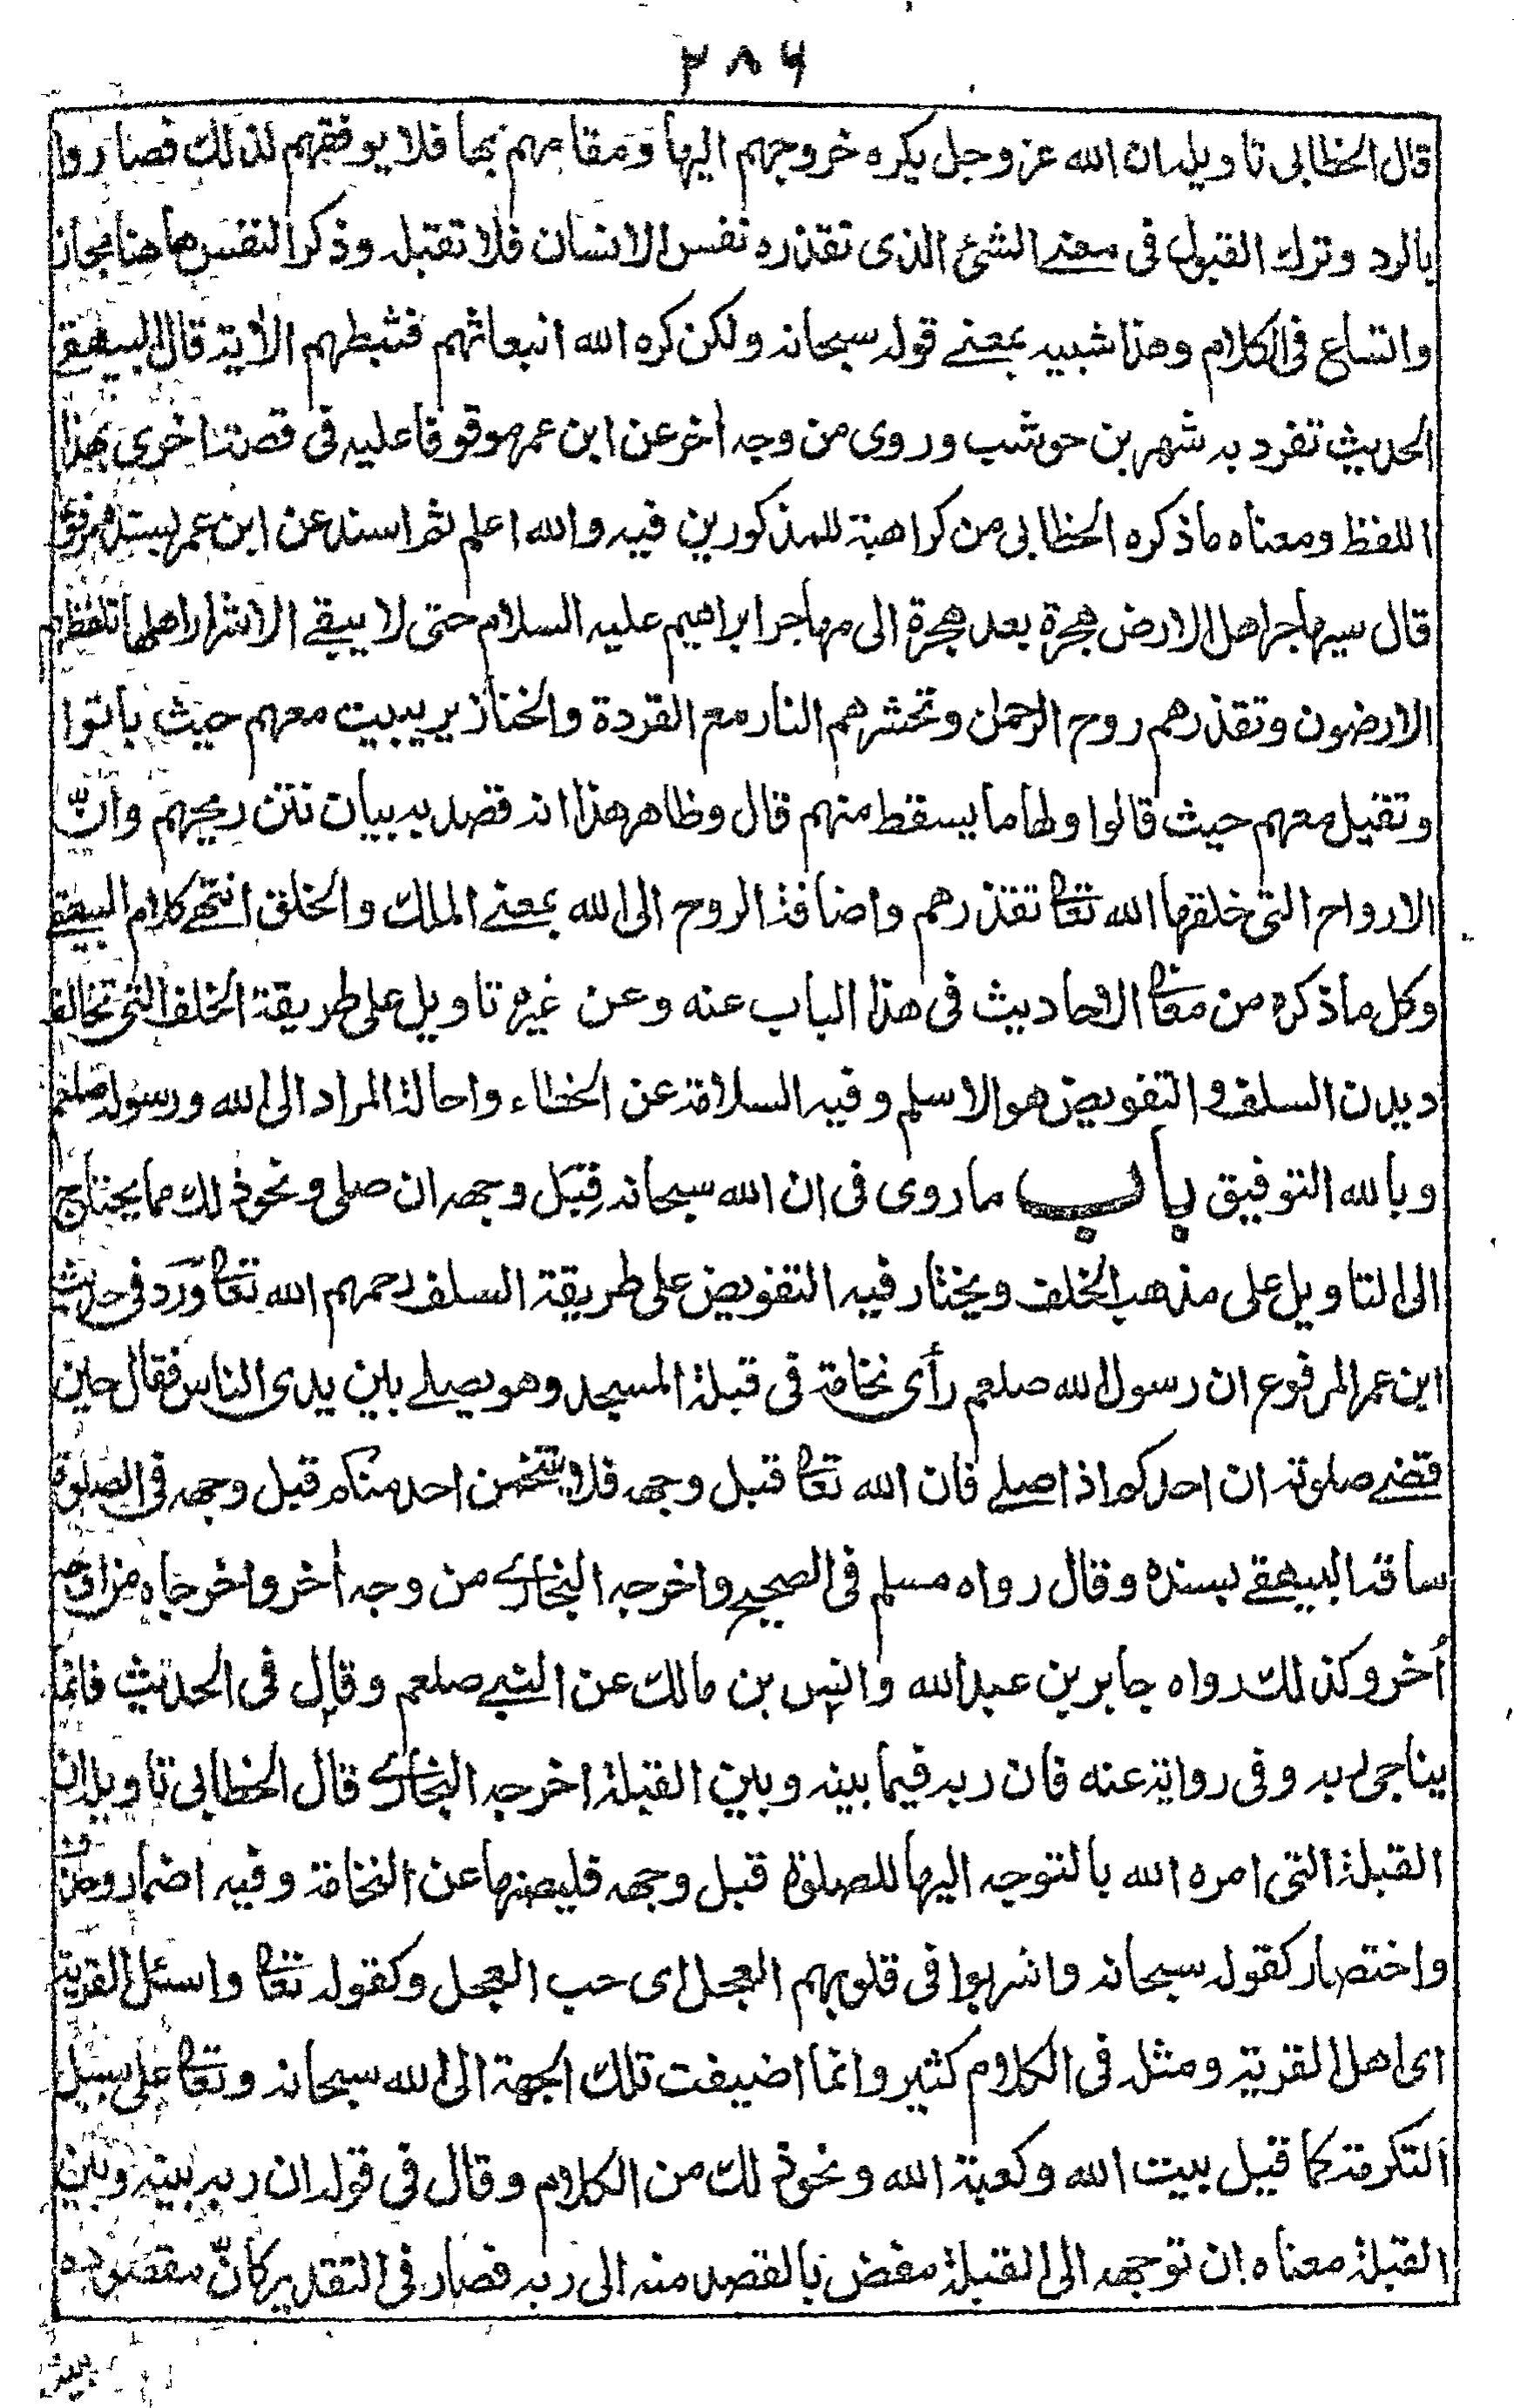 ٢٨٦
قال الخطابی تاویله ان الله عز وجل یکره خروجهم الیها ومقامهم بها فلا یوفقهم لذلك فصاروا
بالرد وترك القبول فی معنے الشئ الذی تقذره نفس الانسان فلا تقبله وذکر النفس هاهنا مجاز
واتساع فی الکلام وهذا شبیه بمعنے قوله سبحانه ولکن کره الله انبعاثهم فثبطهم الایة قال البیهقے
الحدیث تفرد به شهر بن حوشب وروی من وجه اخر عن ابن عمر موقوفا علیه فی قصة اخری بهذا
اللفظ ومعناه ما ذکره الخطابی من کراهیة للمذکورین فیه والله اعلم ثم اسند عن ابن عمر
قال سیهاجر اهل الارض هجرة بعد هجرة الی مهاجر ابراهیم علیه السلام حتی لا یبقے الا شرار اهلها تلفظهم
الارضون وتقذرهم روح الرحمن وتحشرهم النار مع القردة والخنازیر یبیت معهم حیث باتوا
وتقیل معهم حیث قالوا ولها ما یسقط منهم قال وظاهر هذا انه قصد به بیان نتن ریحهم وانّ
الارواح التی خلقها الله تعا تقذرهم واضافة الروح الی الله بمعنے الملك والخلق انتهے کلام البیهقے
وکل ما ذکره من معا الاحادیث فی هذا الباب عنه وعن غیره تاویل علی طریقة الخلف التی تخالف
دیدن السلف والتفویض هو الاسلم وفیه السلامة عن الخطاء واحالة المراد الی الله ورسوله صلعم
وبالله التوفیق باب ما روی فی ان الله سبحانه قِبَل وجهه ان صلی ونحو ذلك مما یحتاج
الی التاویل علی مذهب الخلف ویختار فیه التفویض علی طریقة السلف رحمهم الله تعا وَرَد فی حدیث
ابن عمر المرفوع ان رسول الله صلعم رأی نخامة فی قبلة المسجد وهو یصلے بین یدی الناس فقال حین
قضے صلوته ان احدکم اذا صلے فان الله تعا قبل وجهه فلا یتنخمن احد منکم قبل وجهه فی الصلوة
ساقه البیهقے بسنده وقال رواه مسلم فی الصحیح واخرجه البخارے من وجه اٰخر واخرجاه من اوجه
اُخر وکذلك رواه جابر بن عبد الله وانس بن مالك عن النبے صلعم وقال فی الحدیث فانما
یناجی ربه وفی روایة عنه فان ربه فیما بینه وبین القبلة اخرجه البخارے قال الخطابی تاویله ان
القبلة التی امره الله بالتوجه الیها للصلوة قبل وجهه فلیصنها عن النخامة وفیه اضمار وحذف
واختصار کقوله سبحانه واشربوا فی قلوبهم العجل ای حب العجل وکقوله تعا واسئل القریة
ای اهل القریة ومثله فی الکلام کثیر وانما اضیفت تلك الجهة الی الله سبحانه وتعا علی سبیل
التکرمة کما قیل بیت الله وکعبة الله ونحو ذلك من الکلام وقال فی قوله ان ربه بینه وبین
القبلة معناه ان توجهه الی القبلة مفض بالقصد منه الی ربه فصار فی التقدیر کانّ مقصوده
بینه